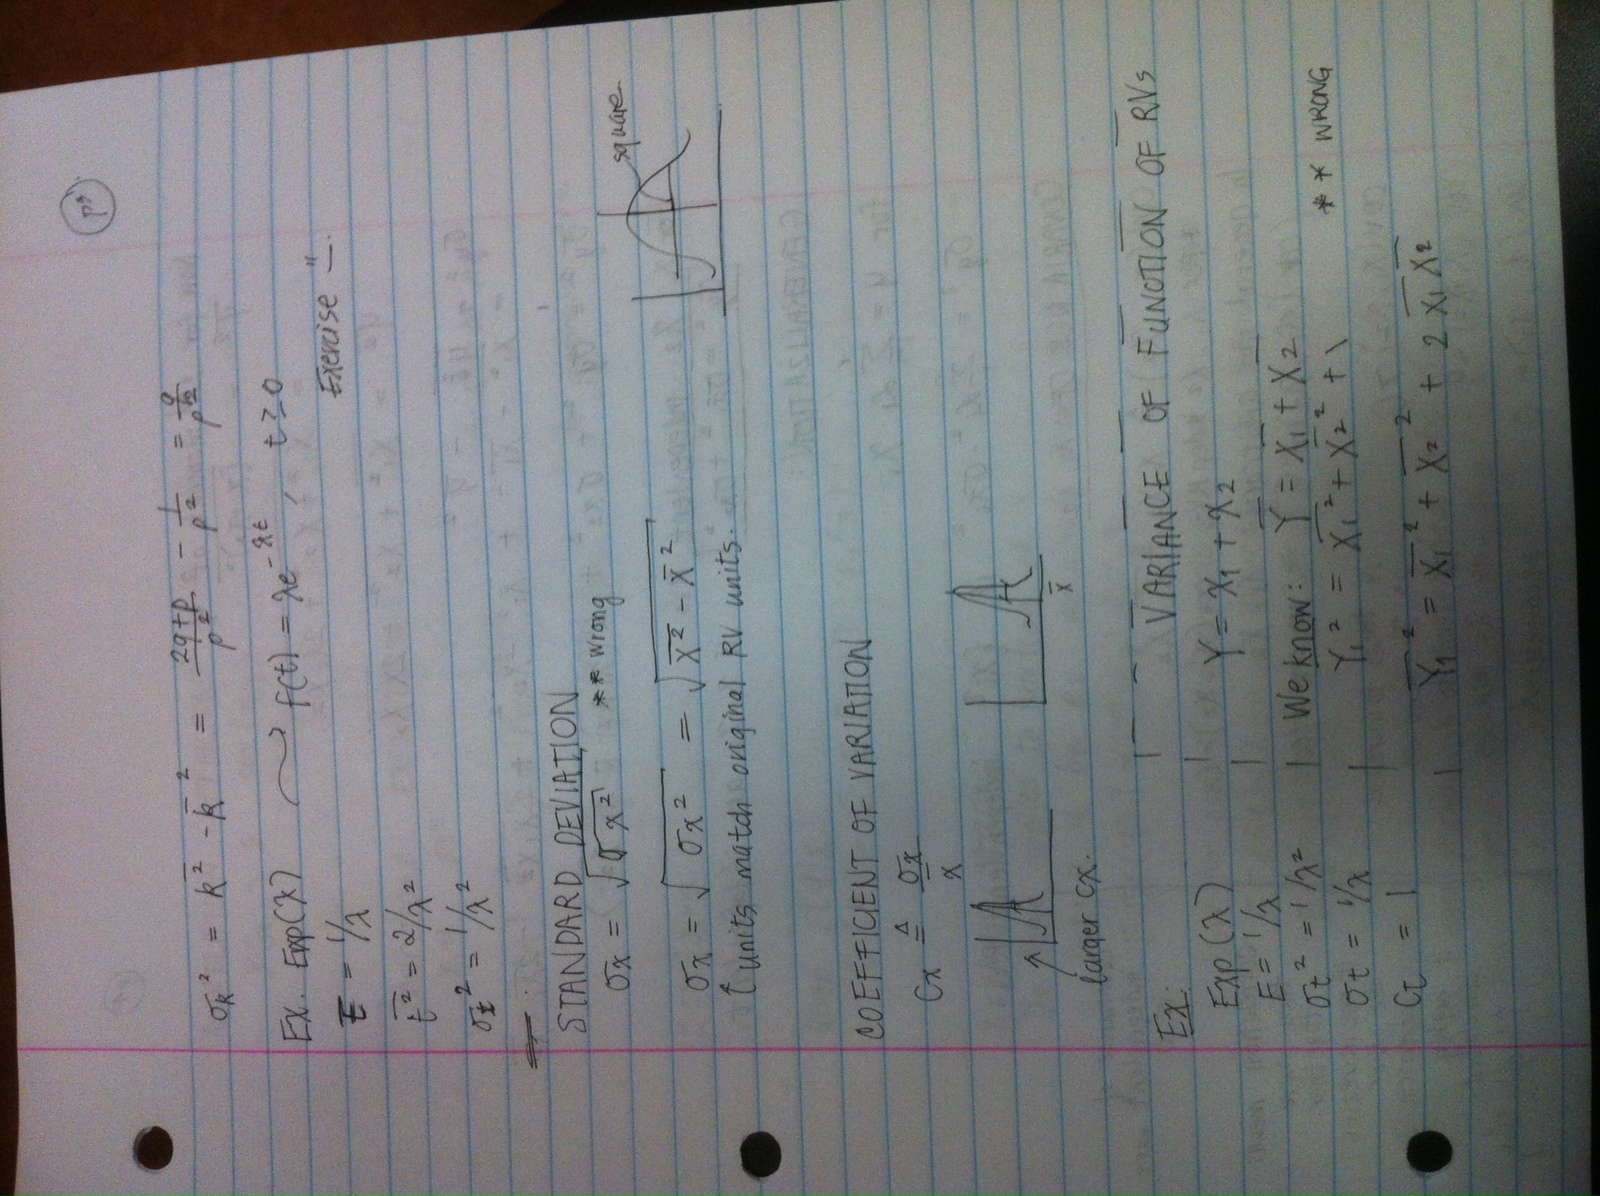 p3
σk² = k̅² - k̅² = 2q+p/p² - 1/p² = q/p²
Ex. Exp(λ) → f(t) = λe^-λt, t ≥ 0
Exercise
t̅ = 1/λ
t̅² = 2/λ²
σt² = 1/λ²
STANDARD DEVIATION
σx = √σx² ** wrong
square
σx = √σx² = √x̅² - x̅²
↑ units match original RV units.
COEFFICIENT OF VARIATION
Cx ≜ σx/x̅
x̅
larger Cx.
Ex:
Exp(λ)
t̅ = 1/λ
σt² = 1/λ²
σt = 1/λ
Ct = 1
VARIANCE OF FUNCTION OF RVs
Y = X1 + X2
We know: Y̅ = X̅1 + X̅2
Y1² = X̅1² + X̅2² + \ ** WRONG
Y̅1² = X̅1² + X̅2² + 2 X̅1 X̅2